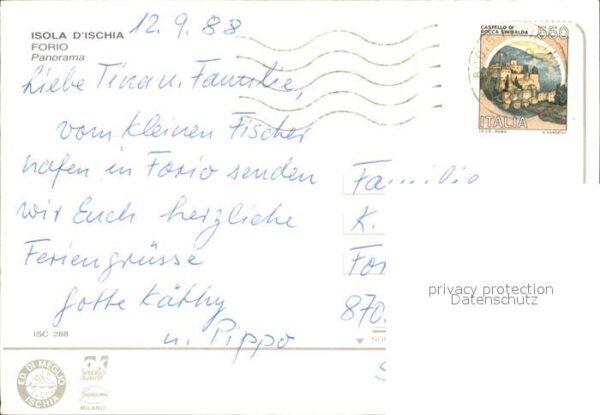 12.9.88
ISOLA D'ISCHIA
FORIO
Panorama
CASTELLO DI
ROCCA SINIBALDA
550
ITALIA
Liebe Tina u. Familie,
vom kleinen Fischer
hafen in Forio senden
wir Euch herzliche
Feriengrüsse
Gotte Käthy
u. Pippo
Familie
K.
For
870
privacy protection
Datenschutz
ISC 288
NON
ED. DI MEGLIO
ISCHIA
MILANO